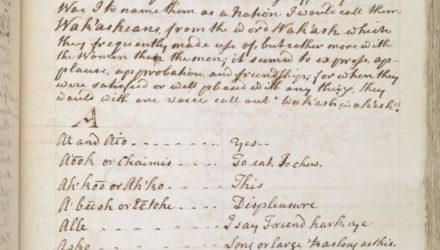 Was I to name them as a Nation I would call them
Wakasheans, from the word Wak'ash which
they frequently made use of, but rather more with
the Women than the men; it seemed to express ap-
plause, approbation and friendship; for when they
were satisfied or well placed with any thing, they
would with one voice call out Wak'ash wak'ash!
A
At and Aio - - - - - - Yes
Aook or Chaimis - - - - - To eat, To chew.
Ah'koo or Ah'ko - - - - - This
A'beesh or Eetche - - - - Displeasure
Alle - - - - - - - I say Friend hark ye
Asko - - - - - - - Long or large as long as this.